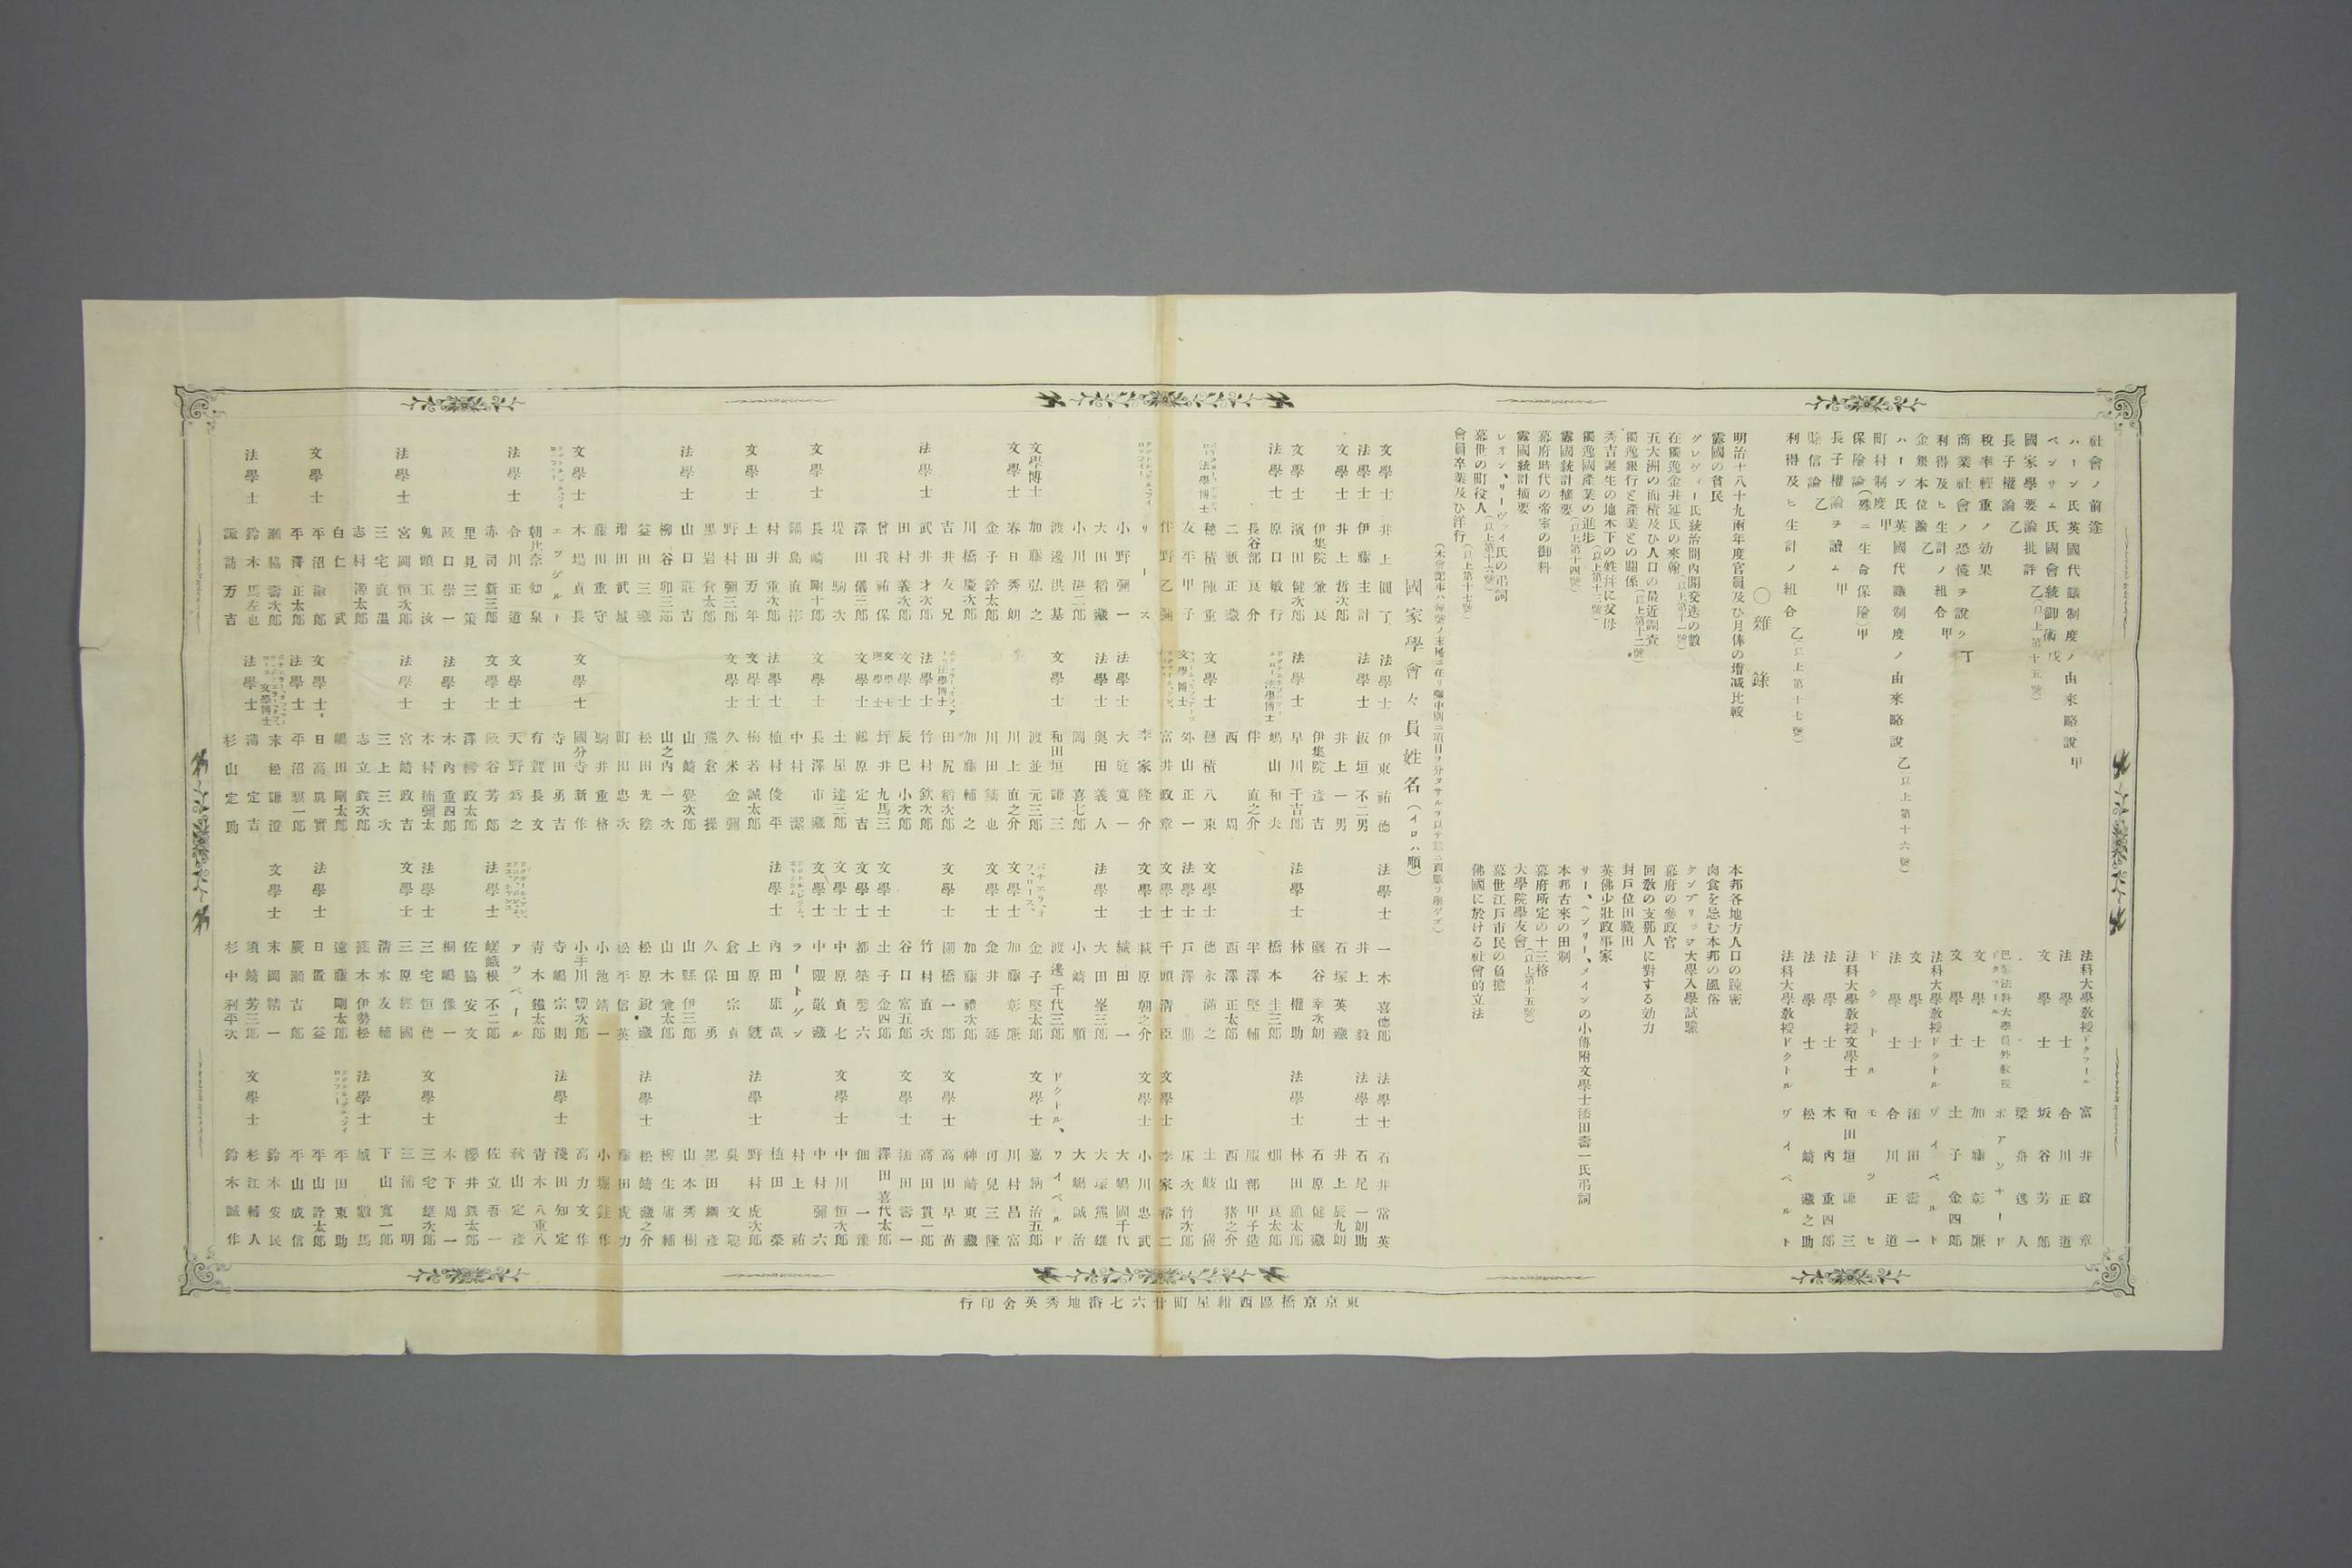 社會ノ前途 法科大學教授ドクトール 富井政章
ハーン氏英國代議制度ノ由來略說 甲 法學士 合川正道
ベンサム氏國會統御術 戊 文學士 坂谷芳郎
國家學要論批評 乙(以上第十五號) 梁舟逸人
長子權論 乙 巴里法科大學員外教授ドクトール ボアソナード
稅率輕重ノ効果 文學士 加藤彰廉
商業社會ノ恐慌ヲ說ク 丁 文學士 土子金四郎
利得及ヒ生計ノ組合 甲 法科大學教授ドクトル ヴイベルト
金銀本位論 乙 文學士 添田壽一
ハーン氏英國代議制度ノ由來略說 乙(以上第十六號) 法學士 合川正道
町村制度 甲 ドクトル モツセ
保險論(殊ニ生命保險)甲 法科大學教授文學士 和田垣謙三
長子權論ヲ讀ム 甲 法學士 木內重四郎
賒信論 乙 法學士 松崎藏之助
利得及ヒ生計ノ組合 乙(以上第十七號) 法科大學教授ドクトル ヴイベルト
〇雜錄
明治十八十九兩年度官員及ひ月俸の增减比較
露國の貧民
グレヴィー氏統治間內閣交迭の數
在獨逸金井延氏の來翰(以上第十一號)
五大洲の面積及ひ人口の最近調查
獨逸銀行と產業との關係(以上第十二號)
秀吉誕生の地木下の姓幷に父母
獨逸國產業の進步(以上第十三號)
露國統計摘要(以上第十四號)
幕府時代の帝室の御料
露國統計摘要
レオン、サーヴッイ氏の吊詞
幕世の町役人(以上第十六號)
會員卒業及ひ洋行(以上第十七號)
本邦各地方人口の疎密
肉食を忌む本邦の風俗
ケンブリッヂ大學入學試驗
幕府の參政官
回敎の支那人に對する効力
封戶位田職田
英佛少壯政事家
サー、ヘンリー、メインの小傳附文學士添田壽一氏吊詞
本邦古來の田制
幕府所定の十三格
大學院學友會(以上第十五號)
幕世江戶市民の負擔
佛國に於ける社會的立法
國家學會々員姓名(イロハ順)
文學士 井上圓了
法學士 伊藤圭計
文學士 井上哲次郎
伊集院兼良
文學士 濱田健次郎
法學士 原口敏行
長谷部良介
二瓶正藏
法學博士 穗積陳重
友平甲子
伴野乙彌
リース
小野彌一
大田稻藏
小川滋二郎
渡邊洪基
文學博士 加藤弘之
文學士 春日秀朗
金子詮太郎
川橋慶次郎
吉井友兄
法學士 武井才次郎
田村義次郎
曾我祐保
澤田儀三郎
堤駒次
文學士 長崎剛十郎
鍋島直彬
村井重次郎
文學士 上田万年
野村彌三郎
黑岩倉太郎
法學士 山口莊吉
柳谷卯三郎
益田三藏
增田武城
藤田重守
文學士 木場貞長
エッゲルト
朝比奈知泉
法學士 合川正道
赤司新三郎
里見三策
阪口崇一
鬼頭玉汝
法學士 宮岡恒次郎
三宅直溫
志村源太郎
白仁武
文學士 平沼淑郎
平澤正太郎
瀨脇壽次郎
法學士 鈴木馬左也
諏訪万吉
法學士 伊東祐德
法學士 板垣不二男
井上一男
伊集院彥吉
法學士 早川千吉郎
法學博士 嶋山和夫
伴直之介
西周
文學士 穗積八束
文學博士 外山正一
富井政章
李家隆介
法學士 大庭寬一
法學士 奧田義人
岡喜七郎
文學士 和田垣謙三
渡並元三郎
川上直之介
川田鑄也
加藤輔之
法學博士 田尻稻次郎
法學士 竹村欽次郎
文學士 辰巳小次郎
坪井九馬三
文學士 鶴原定吉
土屋達三郎
文學士 長澤市藏
中村潔
法學士 植村俊平
文學士 梅若誠太郎
文學士 久米金彌
熊倉操
山崎覺次郎
山之內一次
松田光陰
町田忠次
駒井重格
文學士 國分寺新作
寺田勇吉
有賀長文
文學士 天野爲之
文學士 阪谷芳郎
澤柳政太郎
法學士 木內重四郎
木村補彌太
法學士 宮崎政吉
三上三次
志立鉄次郎
嶋田剛太郎
文學士 日高眞實
法學士 平沼騏一郎
文學博士 末松謙澄
法學士 溝定吉
杉山定助
法學士 一木喜德郎
井上毅
石塚英藏
磯谷幸次郎
法學士 林權助
橋本圭三郎
半澤堅輔
西澤正太郎
文學士 德永滿之
法學士 戶澤鼎
文學士 千頭清臣
文學士 萩原朝之介
織田一
法學士 大田峯三郎
小崎順
渡邊千代三郎
金子堅太郎
文學士 加藤彰廉
文學士 金井延
加藤禮次郎
文學士 棚橋一郎
竹村直次
谷口富五郎
文學士 土子金四郎
文學士 都築馨六
文學士 中原貞七
文學士 中隈敬藏
ラートゲン
法學士 內田康哉
上原毅
倉田宗貞
久保勇
山縣伊三郎
山木兼太郎
松原鋭藏
松平信英
小池靖一
小手川豐次郎
寺嶋宗則
青木鐵太郎
アツペール
法學士 嵯峨根不二郎
佐脇安文
桐嶋像一
法學士 三宅恒德
文學士 三原經國
清水友輔
篠木伊勢松
遠藤剛太郎
法學士 日置益
廣瀨吉郎
文學士 末岡精一
須崎芳三郎
杉中利平次
法學士 石井常英
法學士 石尾一朗助
井上辰九朗
石原健藏
法學士 林田龜太郎
畑良太郎
服部甲子造
西山猪之介
土岐僙
床次竹次郎
文學士 李家裕二
文學士 小川忠武
大嶋國千代
大塚熊雄
大嶋誠治
ドクトル、 ワイベルト
文學士 嘉納治五郎
川村昌富
可兒三隆
神崎東藏
文學士 高田早苗
高田貫一郎
文學士 添田壽一
澤田喜代太郎
佃一豫
文學士 中川恒次郎
中村彌六
村上祐
植田榮
法學士 野村虎次郎
奧文聰
黑田綱彥
山本秀樹
柳生庸輔
法學士 松崎藏之介
藤田虎力
小堀鉎作
高力文作
法學士 淺田知定
青木八重八
秋山定彥
佐立吾一
櫻井鉄太郎
木下周一
文學士 三宅雄次郎
三浦明
下山寬一郎
法學士 城數馬
平田東助
平山詮太郎
平山成信
鈴木安民
文學士 杉江輔人
鈴木誠作
東京京橋區西紺屋町廿六七番地秀英舍印行